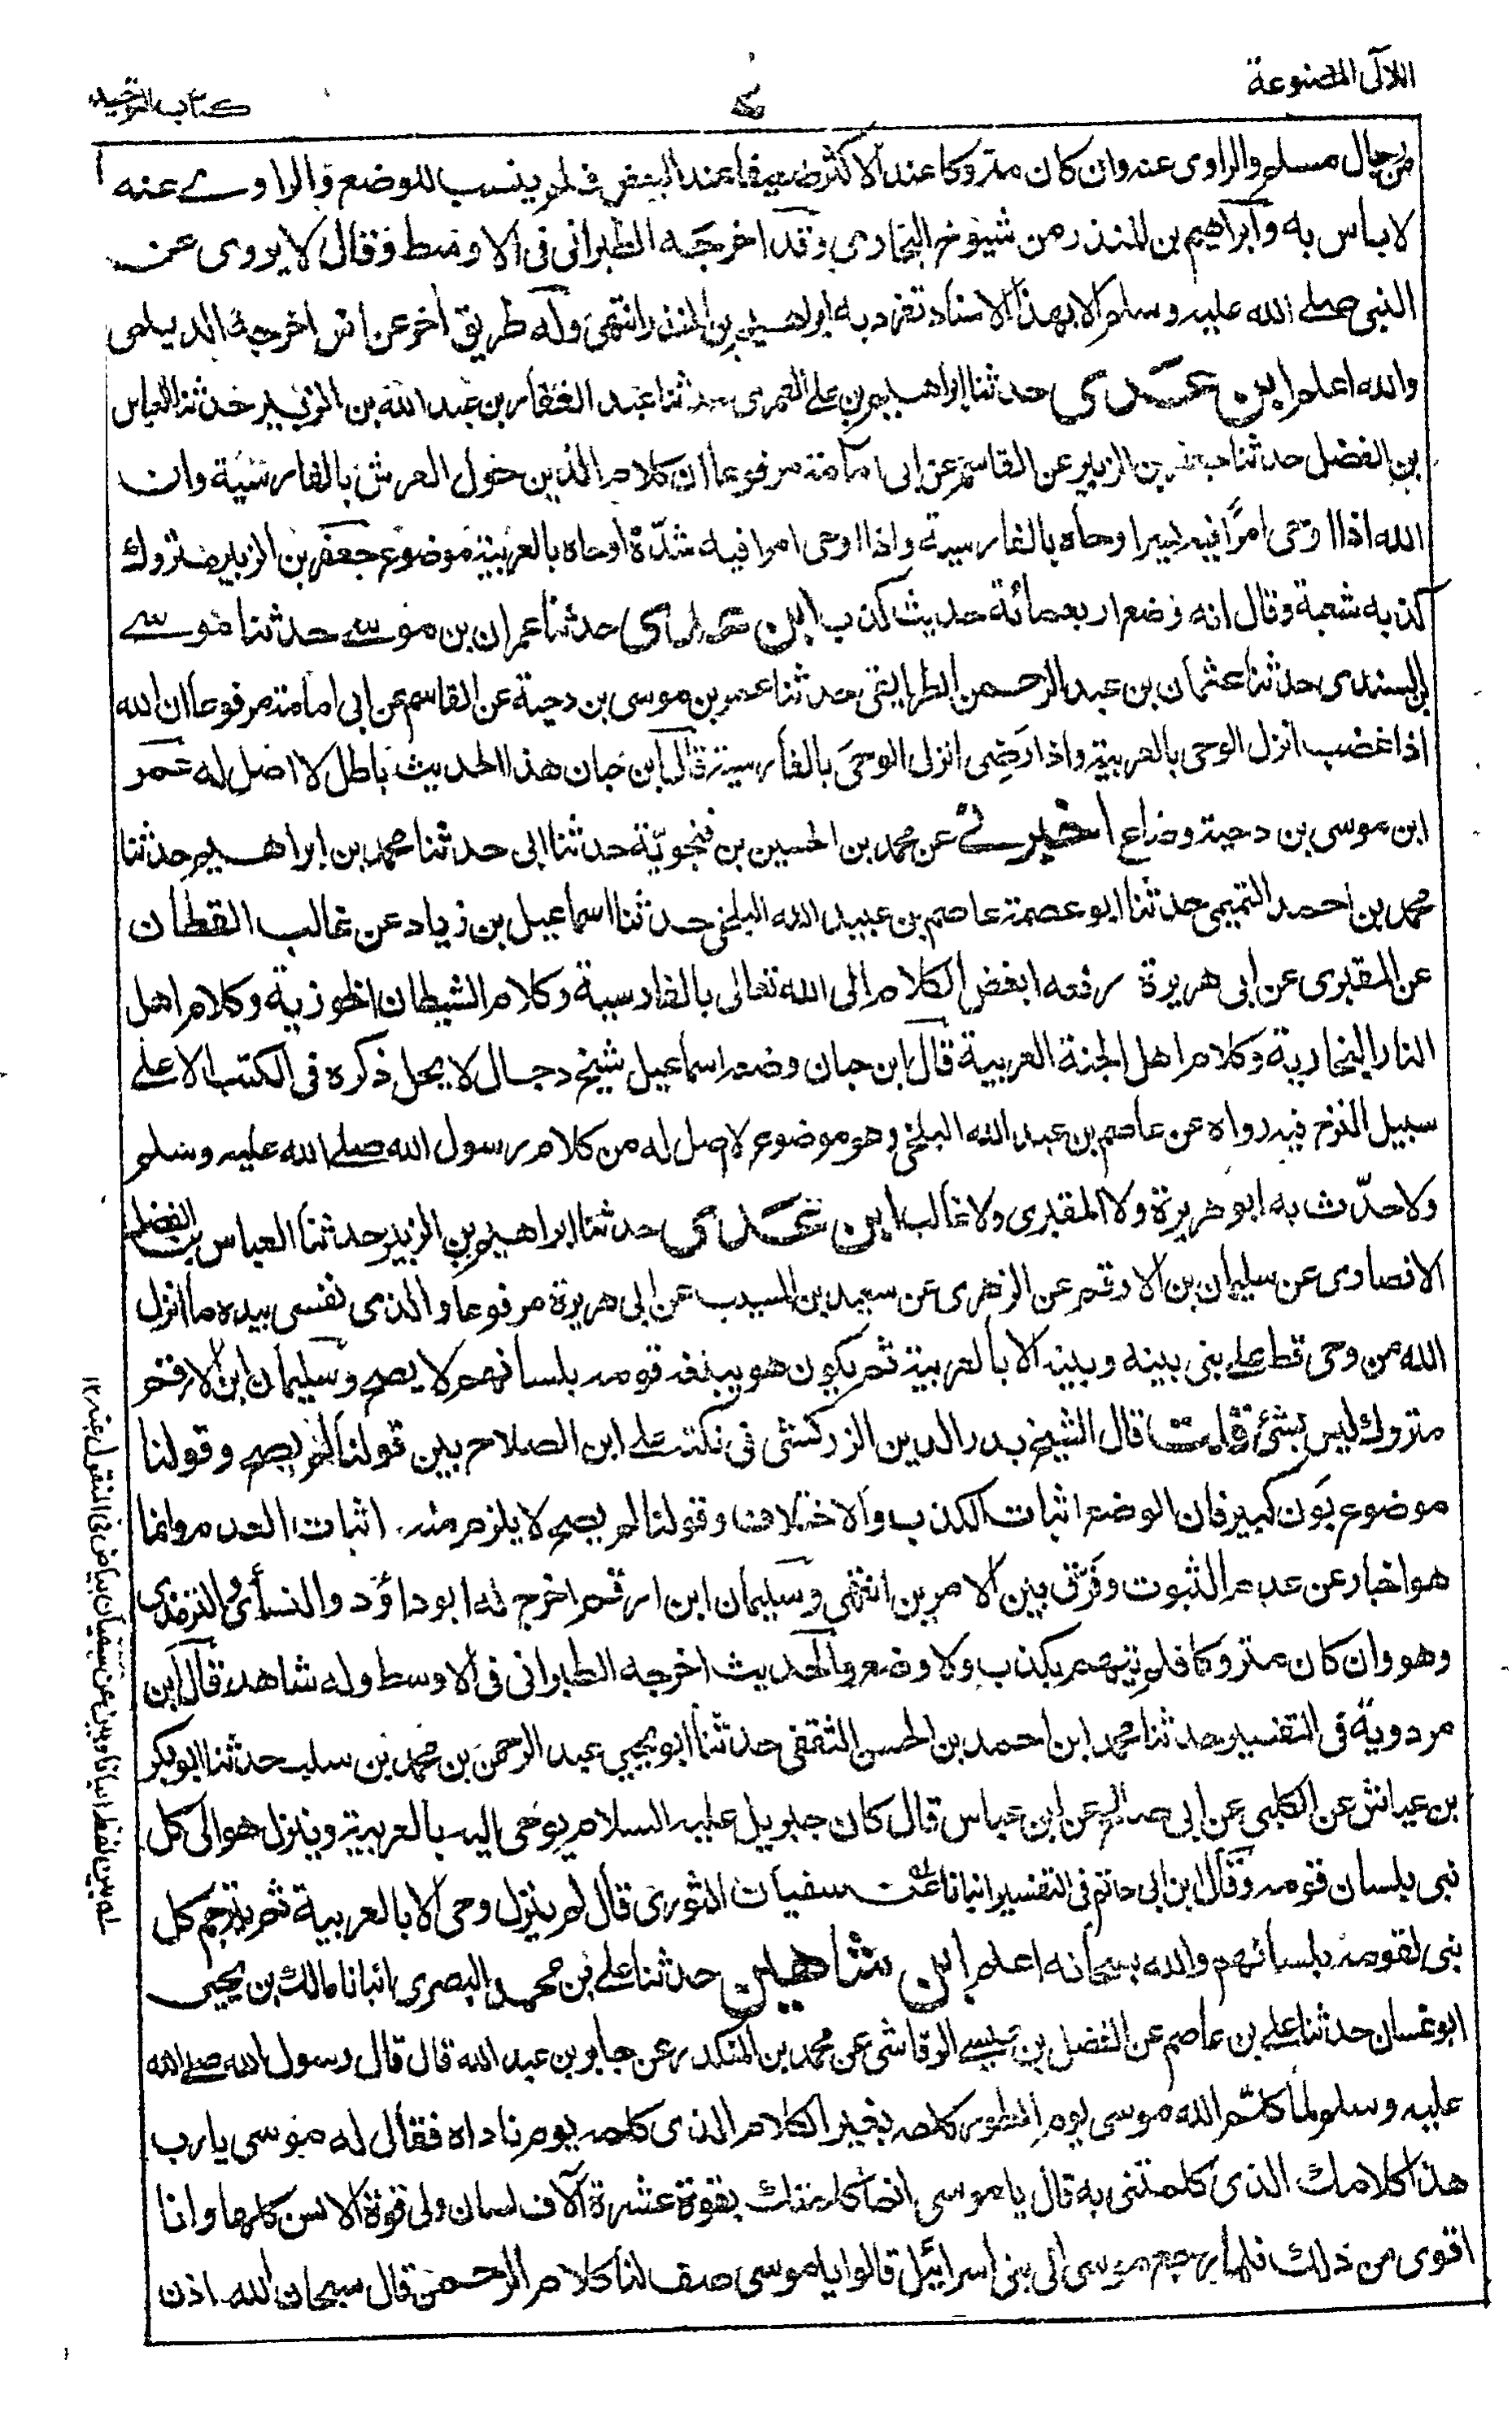 اللآلى المصنوعة
كتاب التوحيد
من رجال مسلم والراوى عنه وان كان متروكا عند الاكثر ضعيفا عند البعض فلم ينسب للوضع والراوے عنه
لا باس به وابراهيم بن المنذر من شيوخ البخارى وقد اخرجه الطبرانى فى الاوسط وقال لا يروى عن
النبى صلے الله عليه وسلم الا بهذا الاسناد تفرد به ابراهيم بن المنذر انتهى وله طريق اخر عن انس اخرجه الديلمى
والله اعلم ابن عدى حدثنا ابراهيم بن على العمرى حدثنا عبد الغفار بن عبد الله بن الزبير حدثنا العباس
بن الفضل حدثنا جعفر بن الزبير عن القاسم عن ابى امامة مرفوعا ان كلام الذين حول العرش بالفارسية وان
الله اذا اوحى امرا فيه يسر اوحاه بالفارسية واذا اوحى امرا فيه شدّة اوحاه بالعربية موضوع جعفر بن الزبير متروك
كذبه شعبة وقال انه وضع اربعمائة حديث كذب ابن عدى حدثنا عمران بن موسے حدثنا موسے
بن السندى حدثنا عثمان بن عبد الرحمن الطرايفى حدثنا عمر بن موسى بن دحية عن القاسم عن ابى امامة مرفوعا ان الله
اذا غضب انزل الوحى بالعربية واذا رضى انزل الوحى بالفارسية قال ابن حبان هذا الحديث باطل لا اصل له عمر
ابن موسى بن دحية وضاع اخبرنے عن محمد بن الحسين بن فنجويّة حدثنا ابى حدثنا محمد بن ابراهيم حدثنا
محمد بن احمد التميمى حدثنا ابو عصمة عاصم بن عبيد الله البلخى حدثنا اسماعيل بن زياد عن غالب القطان
عن المقبرى عن ابى هريرة رفعه ابغض الكلام الى الله تعالى بالفارسية وكلام الشيطان الخوزية وكلام اهل
النار البخارية وكلام اهل الجنة العربية قال ابن حبان وضعه اسماعيل شيخ دجال لا يحل ذكره فى الكتب الا على
سبيل القدح فيه رواه عن عاصم بن عبد الله البلخى وهو موضوع لا اصل له من كلام رسول الله صلے الله عليه وسلم
ولا حدّث به ابو هريرة ولا المقبرى ولا غالب ابن عدى حدثنا ابراهيم بن الزبير حدثنا العباس بن الفضل
الانصارى عن سليمان بن الارقم عن الزهرى عن سعيد بن المسيب عن ابى هريرة مرفوعا والذى نفسى بيده ما انزل
الله من وحى قط على نبى بينه وبينه الا بالعربية ثم يكون هو يبلغه قومه بلسانهم لا يصح وسليمان بن الارقم
متروك ليس بشئ قلت قال الشيخ بدر الدين الزركشى فى نكته على ابن الصلاح بين قولنا لم يصح وقولنا
موضوع بون كبير فان الوضع اثبات الكذب والاختلاق وقولنا لم يصح لا يلزم منه اثبات العدم وانما
هو اخبار عن عدم الثبوت وفرّق بين الامرين انتهى وسليمان ابن ارقم اخرج له ابو داؤد والنسائى والترمذى
وهو وان كان متروكا فلم يتهم بكذب ولا وضع والحديث اخرجه الطبرانى فى الاوسط وله شاهد قال ابن
مردوية فى التفسير حدثنا محمد ابن احمد بن الحسن الثقفى حدثنا ابو يحيى عبد الرحمن بن محمد بن سلب حدثنا ابو بكر
بن عياش عن الكلبى عن ابى صالح عن ابن عباس قال كان جبريل عليه السلام يوحى اليه بالعربية وينزل هو الى كل
نبى بلسان قومه وقال ابن ابى حاتم فى التفسير انبانا عن سفيان الثورى قال لم ينزل وحى الا بالعربية ثم يترجم كل
نبى لقومه بلسانهم والله سبحانه اعلم ابن شاهين حدثنا على بن محمد البصرى انبانا مالك بن يحيى
ابو غسان حدثنا على بن عاصم عن الفضل بن عيسے الرقاشى عن محمد بن المنكدر عن جابر بن عبد الله قال قال رسول الله صلے الله
عليه وسلم لما كلّم الله موسى يوم الطور كلمه بغير الكلام الذى كلمه يوم ناداه فقال له موسى يا رب
هذا كلامك الذى كلمتنى به قال يا موسى انما كلمتك بقوة عشرة آلاف لسان ولى قوة الالسن كلها وانا
اقوى من ذلك فلما رجع موسى الى بنى اسرائيل قالوا يا موسى صف لنا كلام الرحمن قال سبحان الله اذن
بين لفظ انبانا وبين عن سفيان بياض فى المنقول عنه ١٢